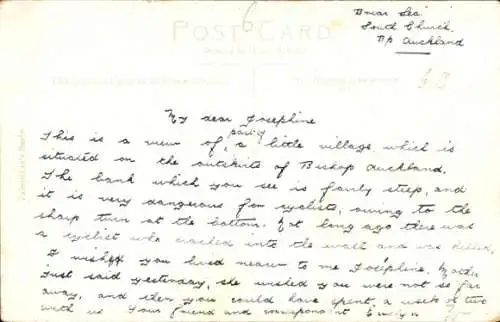 6
Briar Lea.
South Church.
Bp Auckland
POST CARD
63
My dear Josephine
This is a view of, part of a little village which is
situated on the outskirts of Bishop Auckland.
The bank which you see is fairly steep, and
it is very dangerous for cyclists, owing to the
sharp turn at the bottom. Not long ago there was
a cyclist who crashed into the wall and was killed.
I wish you lived nearer to me Josephine. Mother
just said yesterday, she wished you were not so far
away, and then you could have spent, a week or two
with us Your friend and correspondent Evelyn